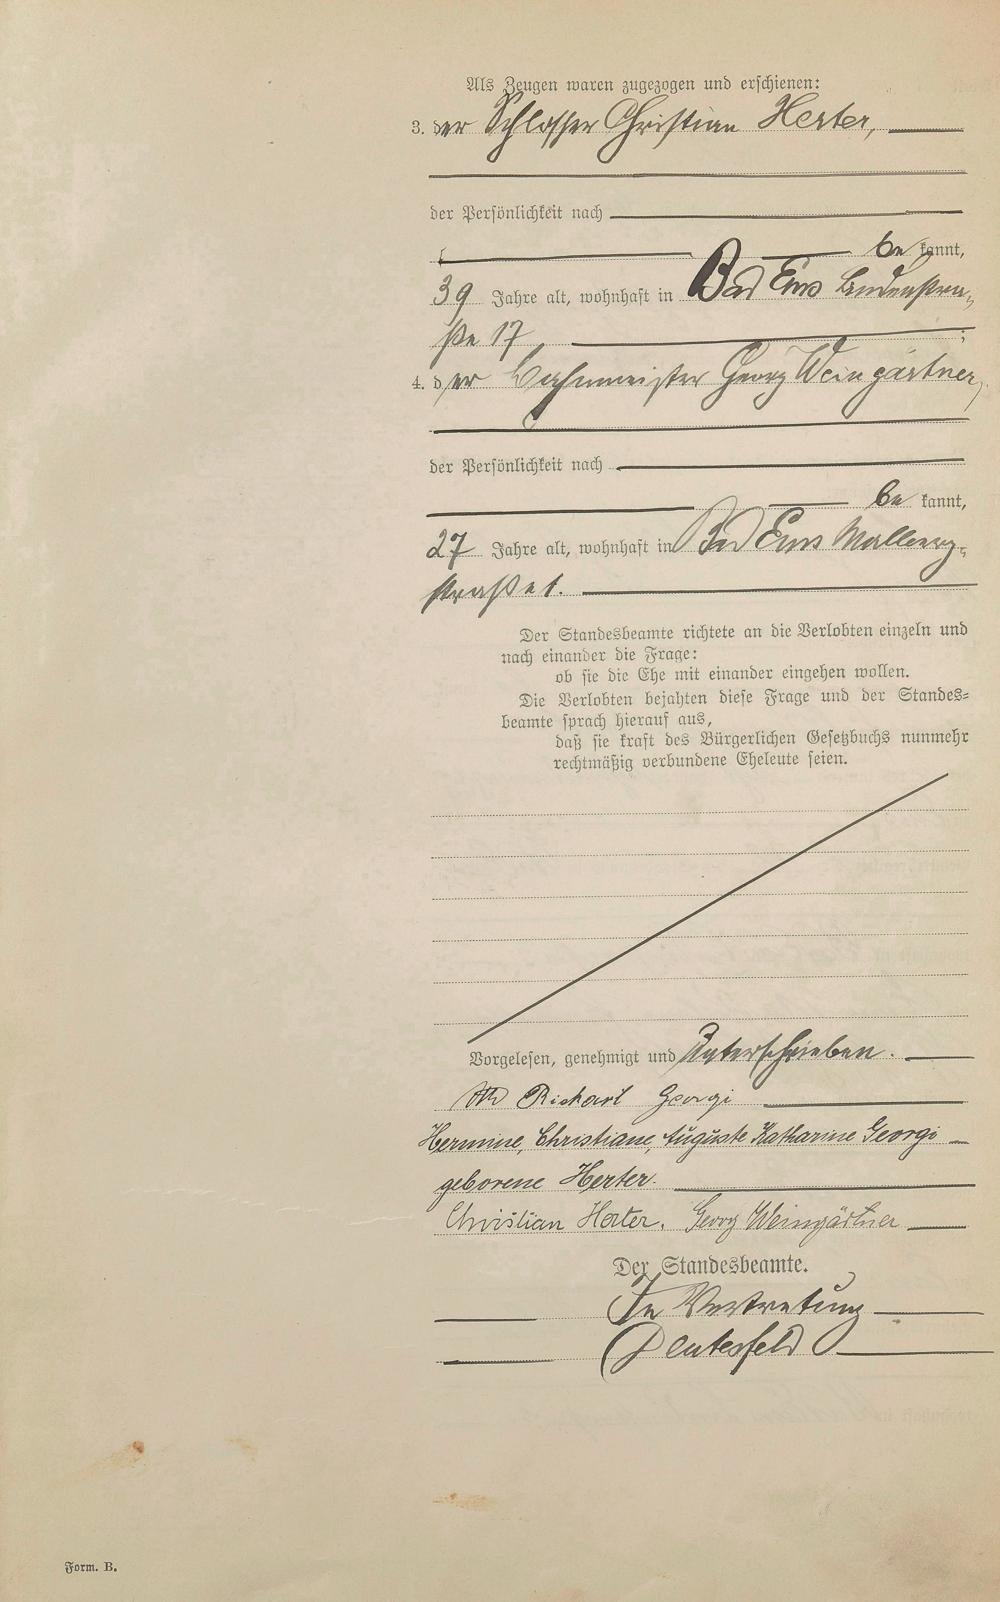 Als Zeugen waren zugezogen und erschienen:
3. der Schlosser Christian Herter,
der Persönlichkeit nach
be kannt,
39 Jahre alt, wohnhaft in Bad Ems Lindenstra-
ße 17 ;
4. der Bahnmeister Georg Weingärtner,
der Persönlichkeit nach
be kannt,
27 Jahre alt, wohnhaft in Bad Ems Mallberg-
straße 1.
Der Standesbeamte richtete an die Verlobten einzeln und
nach einander die Frage:
ob sie die Ehe mit einander eingehen wollen.
Die Verlobten bejahten diese Frage und der Standes-
beamte sprach hierauf aus,
daß sie kraft des Bürgerlichen Gesetzbuchs nunmehr
rechtmäßig verbundene Eheleute seien.
Vorgelesen, genehmigt und Unterschrieben.
Richard Georgi
Hermine, Christiane, Auguste Katharine Georgi
geborene Herter.
Christian Herter. Georg Weingärtner
Der Standesbeamte.
In Vertretung
Form. B.